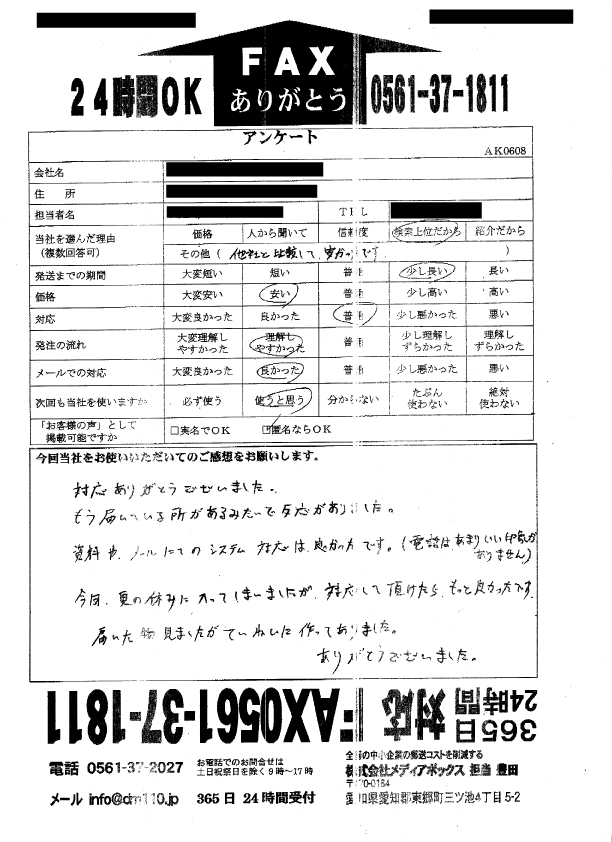 FAX
24時間OK ありがとう 0561-37-1811
アンケート
AK0608
会社名
住 所
担当者名 TEL
当社を選んだ理由 (複数回答可) 価格 人から聞いて 信頼度 検索上位だから 紹介だから
その他( 他社と比較して、安かったです )
発送までの期間 大変短い 短い 普通 少し長い 長い
価格 大変安い 安い 普通 少し高い 高い
対応 大変良かった 良かった 普通 少し悪かった 悪い
発注の流れ 大変理解しやすかった 理解しやすかった 普通 少し理解しずらかった 理解しずらかった
メールでの対応 大変良かった 良かった 普通 少し悪かった 悪い
次回も当社を使いますか 必ず使う 使うと思う 分からない たぶん使わない 絶対使わない
「お客様の声」として掲載可能ですか □実名でOK ☑匿名ならOK
今回当社をお使いいただいてのご感想をお願いします。
対応ありがとうございました。
もう届いている所があるみたいで反応がありました。
資料や、メールにてのシステム対応は、良かったです。(電話はあまりいい印象がありません)
今回、夏の休みに入ってしまいましたが、対応して頂けたら、もっと良かったです。
届いた物見ましたがていねいに作ってありました。
ありがとうございました。
365日24時間対応 FAX0561-37-1811
電話 0561-37-2027 お電話でのお問合せは土日祝祭日を除く9時~17時
メール info@dm110.jp 365日 24時間受付
全国の中小企業の郵送コストを削減する
株式会社メディアボックス 担当 豊田
〒470-0164
愛知県愛知郡東郷町三ツ池4丁目5-2